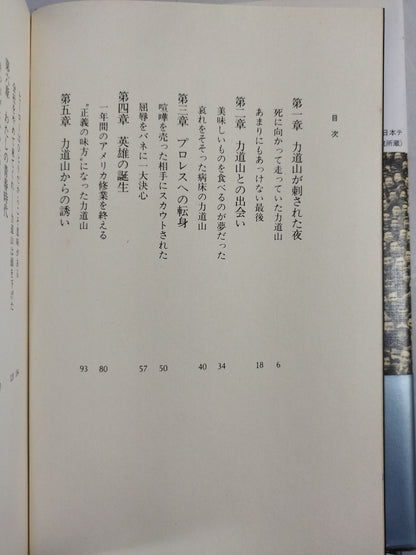 目次
第一章　力道山が刺された夜
死に向かって走っていた力道山 6
あまりにもあっけない最後 18
第二章　力道山との出会い
美味しいものを食べるのが夢だった 34
哀れをそそった病床の力道山 40
第三章　プロレスへの転身
喧嘩を売った相手にスカウトされた 50
屈辱をバネに一大決心 57
第四章　英雄の誕生
一年間のアメリカ修業を終える 80
“正義の味方”になった力道山 93
第五章　力道山からの誘い